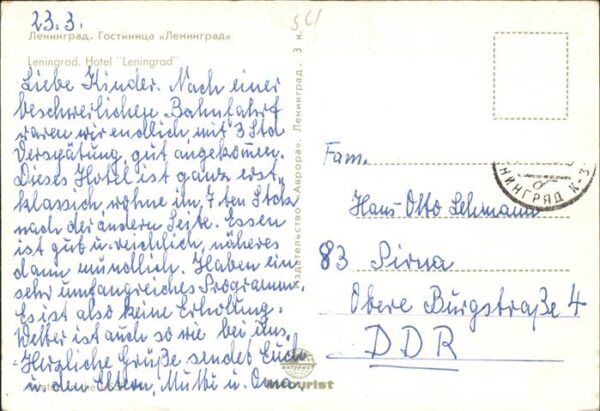 23.3.
Ленинград. Гостиница «Ленинград»
Leningrad. Hotel "Leningrad"
Liebe Kinder. Nach einer
beschwerlichen Bahnfahrt
waren wir endlich mit 3 Std
Verspätung gut angekommen.
Dieses Hotel ist ganz erst
klassich wohne im 7ten Stck
nach der andern Seite. Essen
ist gut u. reichlich, näheres
dann mündlich. Haben ein
sehr umfangreiches Programm
Es ist also keine Erholung.
Wetter ist auch so wie bei uns.
Herzliche Grüße sendet Euch
u. den Eltern, Mutti u. Oma
Издательство «Аврора». Ленинград. 3 к.
Fam.
Hans Otto Lehmann
83 Pirna
Obere Burgstraße 4
DDR
НИНГРАД К-3
интурист
intourist